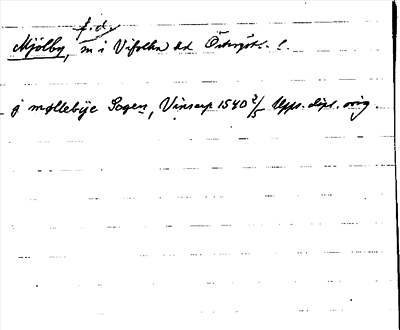 f.d.
Mjölby, m i Vifolka hd Östergötl. l.
j møllebije Sogen, Vinsarp 1540 2/5 Upps. dipl. orig.